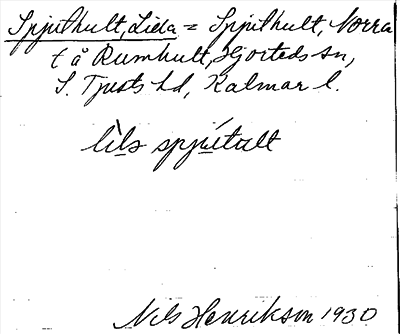 Spjuthult, Lida = Spjuthult, Norra
t å Rumhult, Hjorteds sn,
S. Tjusts hd, Kalmar l.
spjútalt
Nils Henrikson 1930